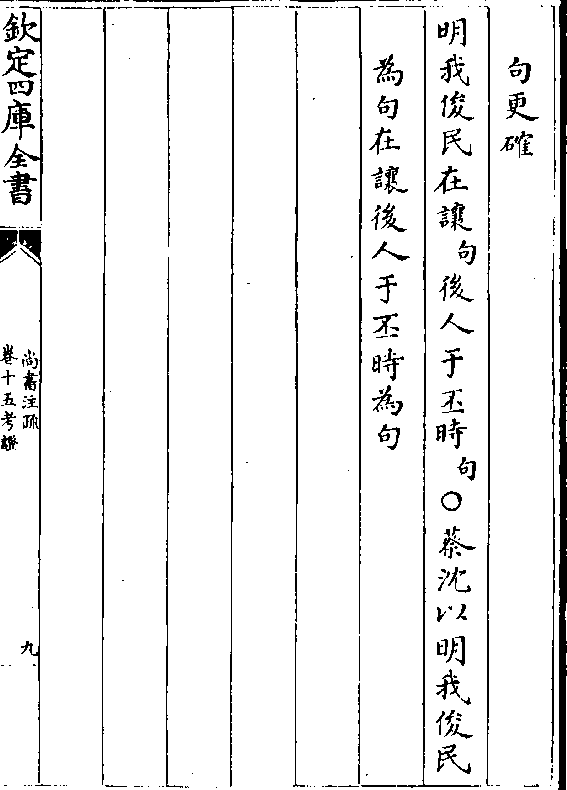 句更確
明我俊民在讓句後人于丕時句○蔡沈以明我俊民
為句在讓後人于丕時為句
欽定四庫全書
尚書注疏
卷十五考證
九